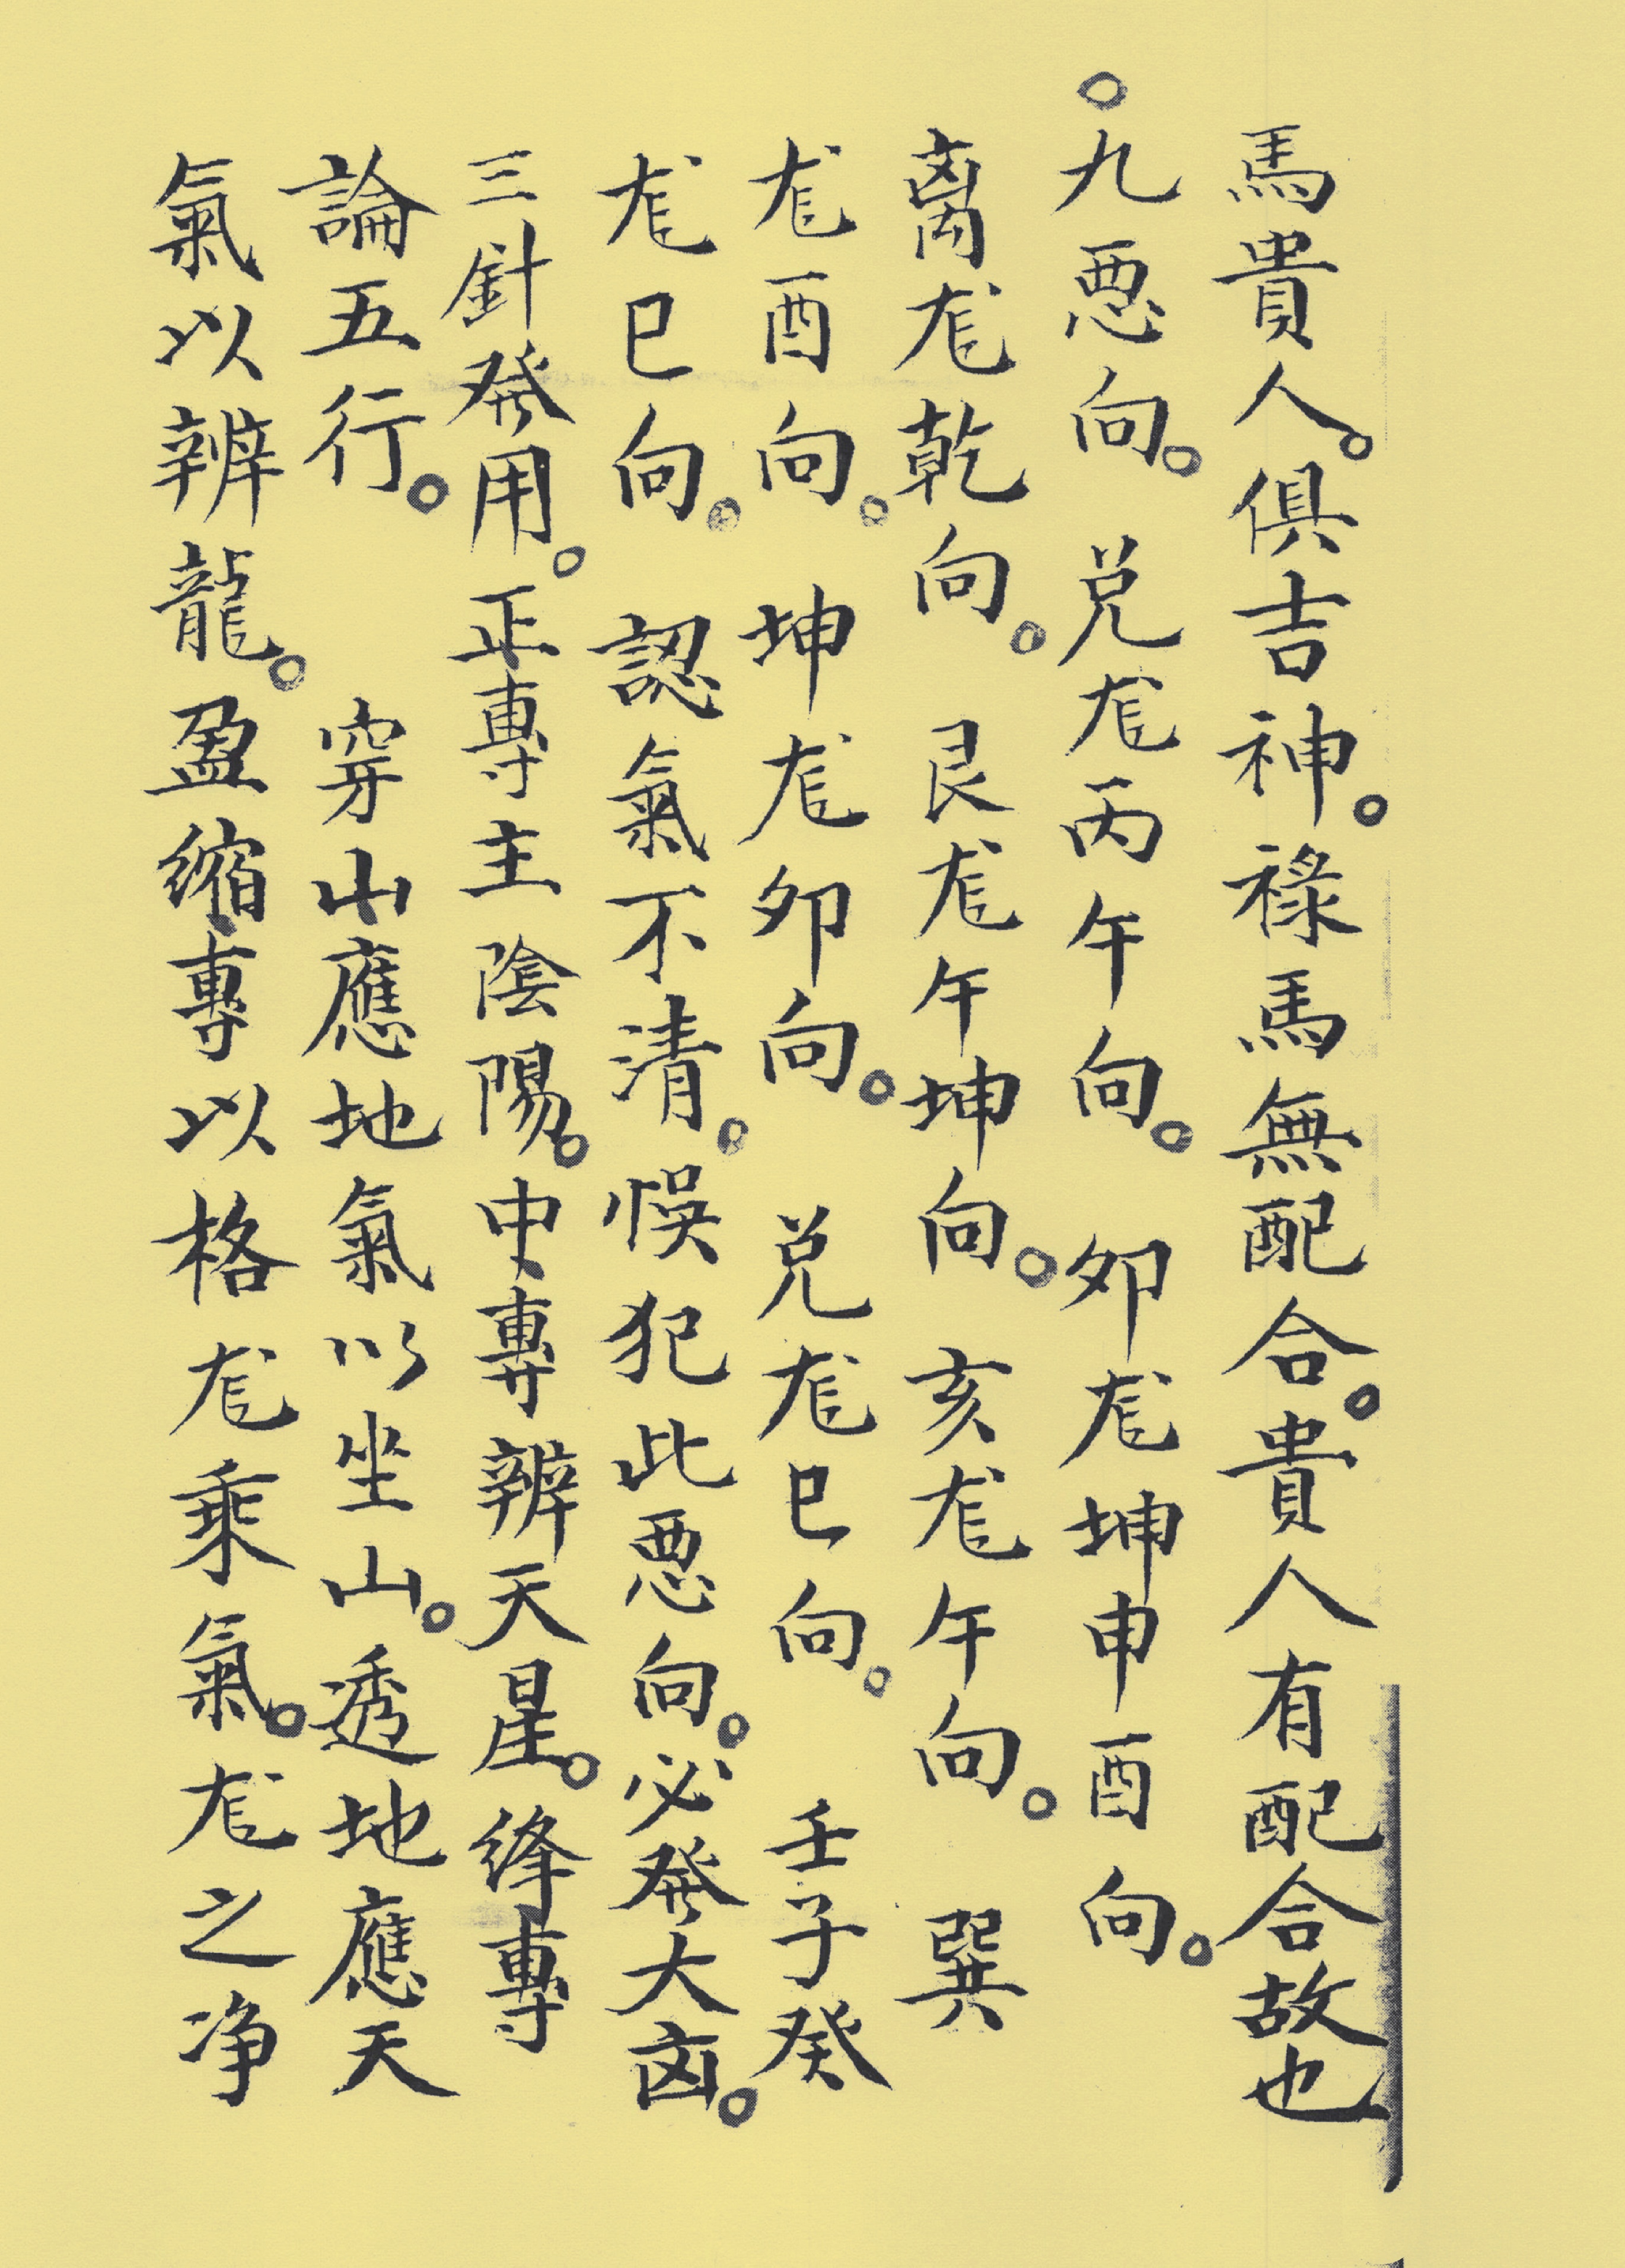 馬貴人。俱吉神。祿馬無配合。貴人有配合故也
○九悪向。兑龙丙午向。夘龙坤申酉向。
离龙乾向。艮龙午坤向。亥龙午向。巽
龙酉向。坤龙夘向。兑龙巳向。壬子癸
龙巳向。認氣不清。悮犯此悪向。必発大㐫。
三針発用。正專主陰陽。中專辨天星。綘專
論五行。穿山應地氣以坐山。透地應天
氣以辨龍。盈縮專以格龙乘氣。龙之净